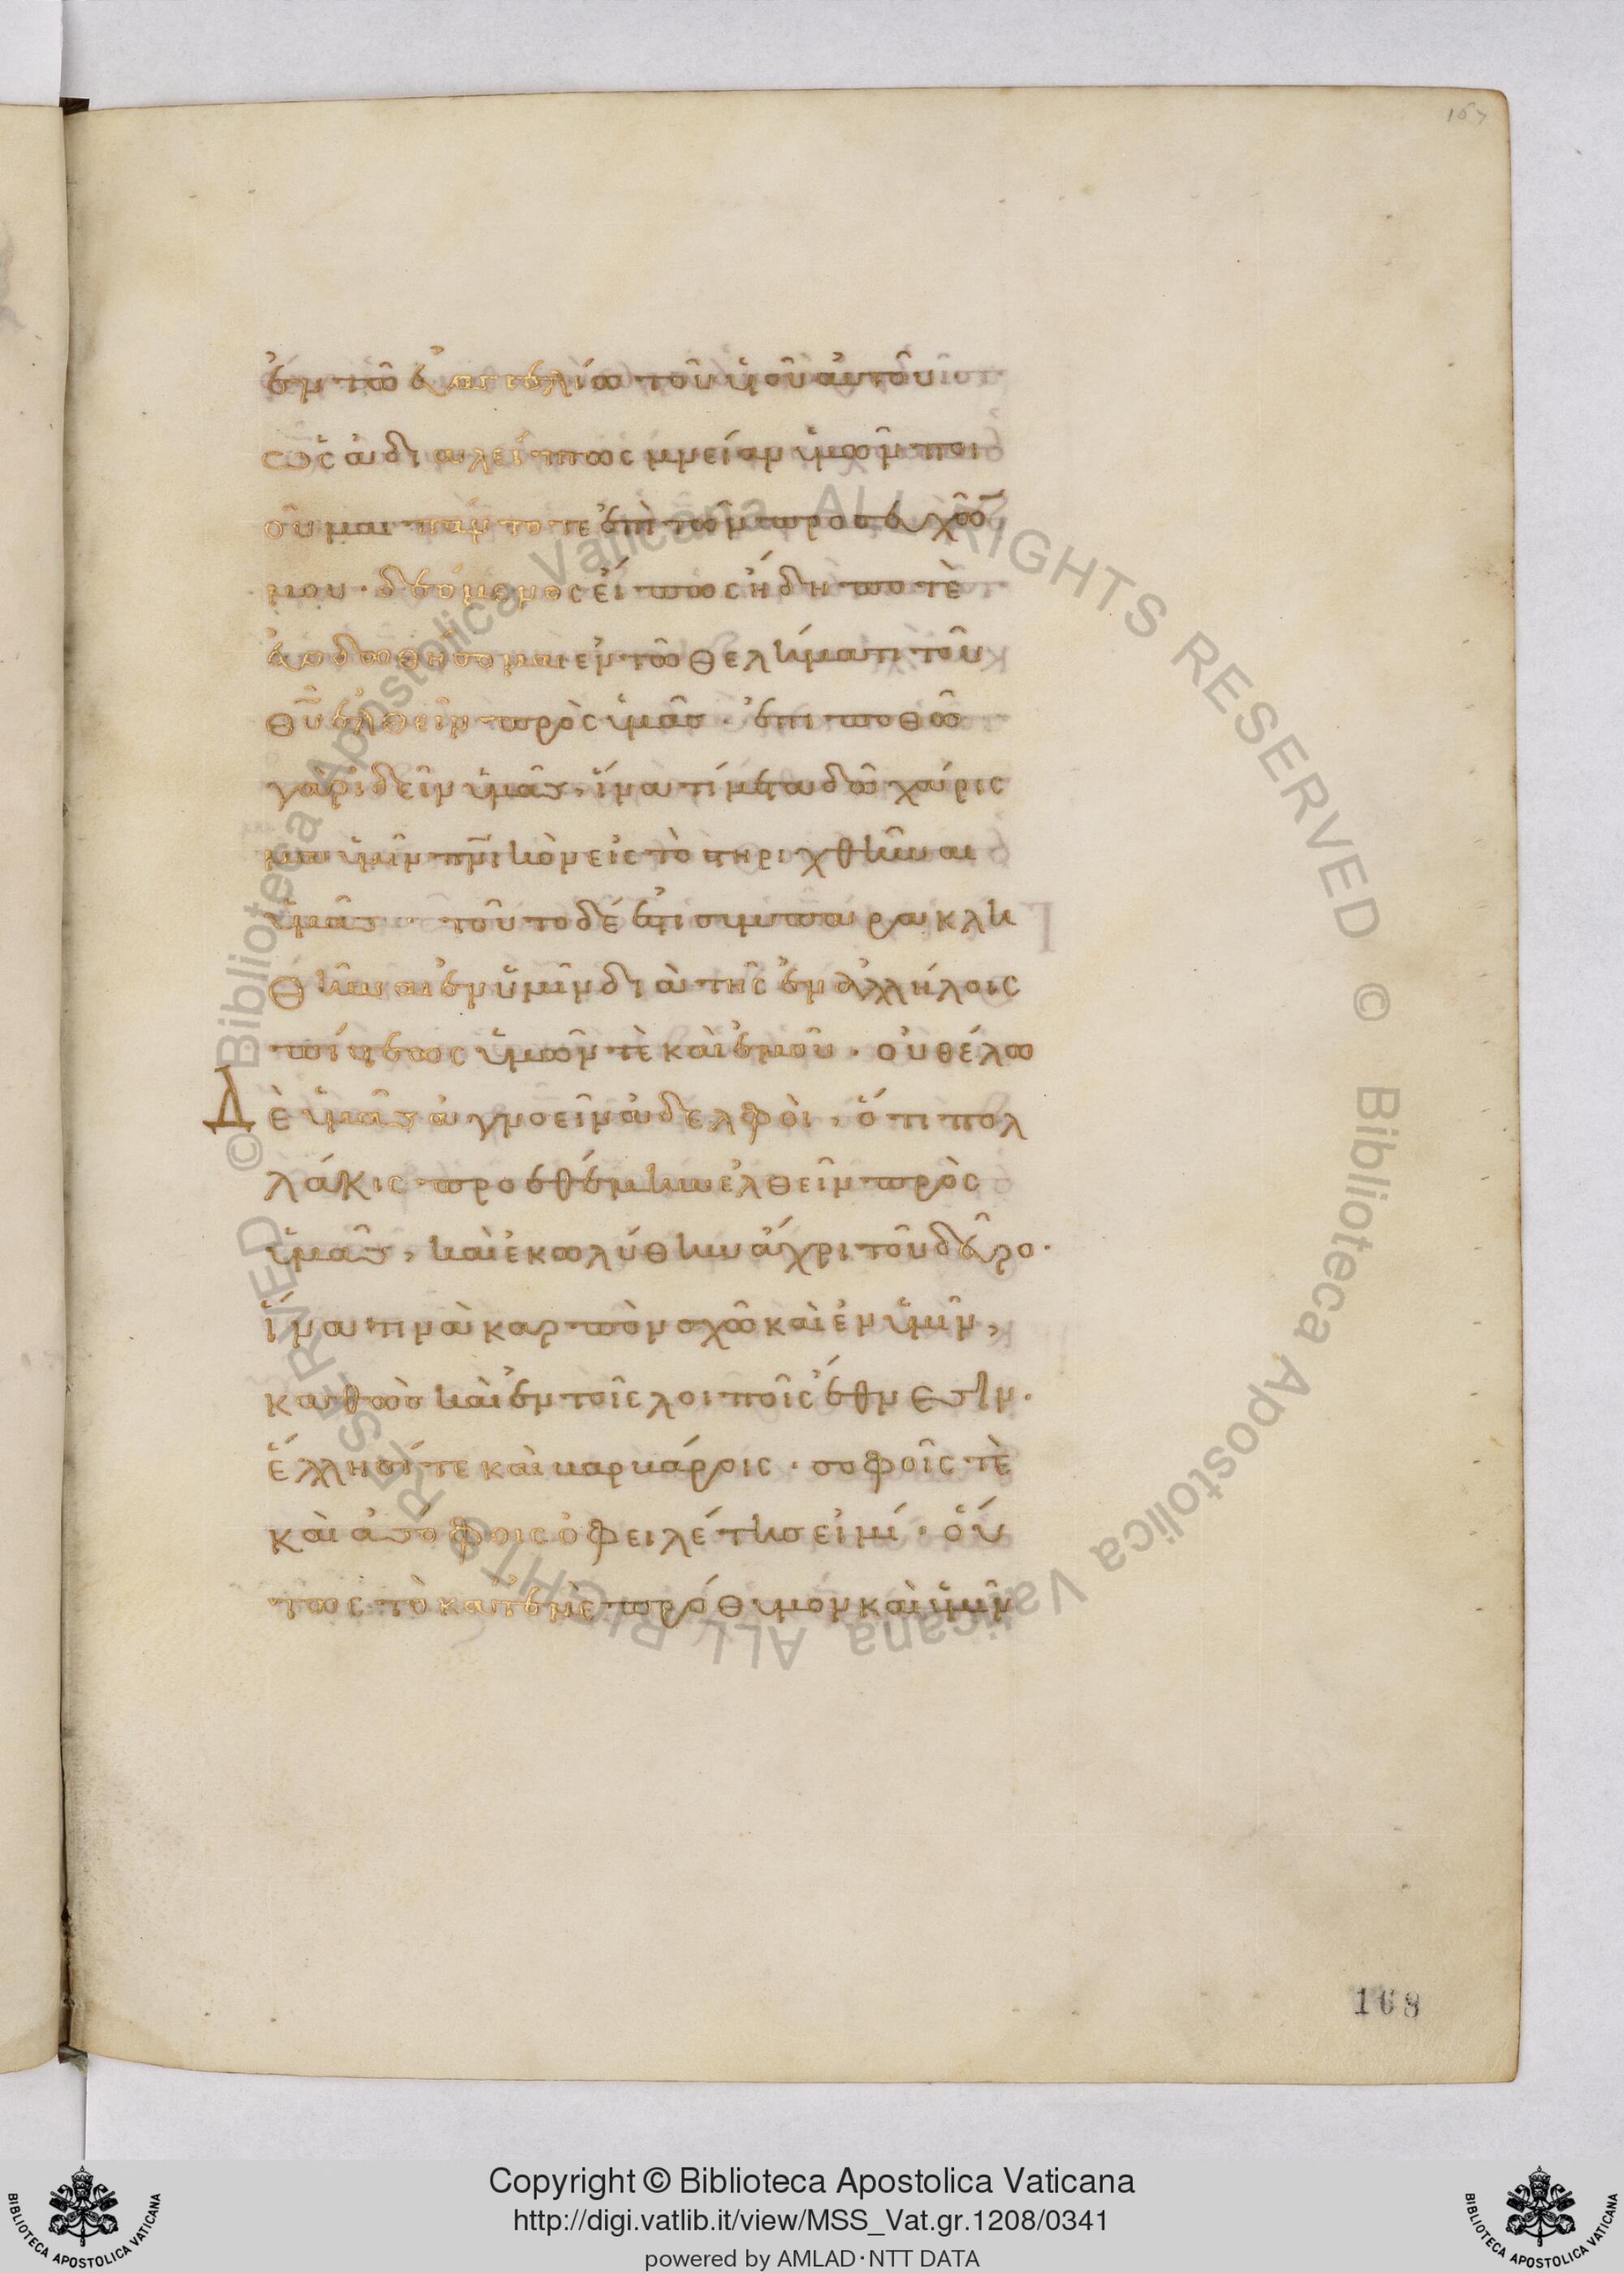 167
ἐν τῶ εὐαγγελίω τοῦ ὑοῦ αὐτοῦ
ὡς ἀδιαλείπτως μνείαν ὑμῶν ποι
οῦμαι πάντοτε ἐπὶ τῶν προσευχῶ
μου · δεόμενος εἴ πως ἤδη ποτὲ
εὐοδωθήσομαι ἐν τῶ θελήματι τοῦ
θυ ἐλθεῖν πρὸς ὑμᾶς · ἐπιποθῶ
γὰρ ἰδεῖν ὑμᾶς, ἵνα τί μεταδῶ χάρις
μα ὑμῖν πνικὸν εἰς τὸ στηριχθῆναι
ὑμᾶς · τοῦτο δέ ἐστι συμπαρακλη
θῆναι ἐν ὑμῖν διὰ τῆς ἐν ἀλλήλοις
πίστεως ὑμῶν τὲ καὶ ἐμοῦ · οὐ θέλω
Δὲ ὑμᾶς ἀγνοεῖν ἀδελφοὶ, ὅτι πολ
λάκις προεθέμην ἐλθεῖν πρὸς
ὑμᾶς, καὶ ἐκωλύθην ἄχρι τοῦ δεῦρο ·
ἵνα τινὰ καρπὸν σχῶ καὶ ἐν ὑμῖν,
καθὼς καὶ ἐν τοῖς λοιποῖς ἔθνεσιν ·
ἕλλησί τε καὶ βαρβάροις · σοφοῖς τὲ
καὶ ἀσόφοις ὀφειλέτης εἰμί · οὕ
τως τὸ κατ' ἐμὲ πρόθυμον καὶ ὑμῖν
168
© Biblioteca Apostolica Vaticana ALL RIGHTS RESERVED © Biblioteca Apostolica Vaticana ALL RIGHTS RESERVED
Copyright © Biblioteca Apostolica Vaticana
http://digi.vatlib.it/view/MSS_Vat.gr.1208/0341
powered by AMLAD·NTT DATA
BIBLIOTECA APOSTOLICA VATICANA
BIBLIOTECA APOSTOLICA VATICANA